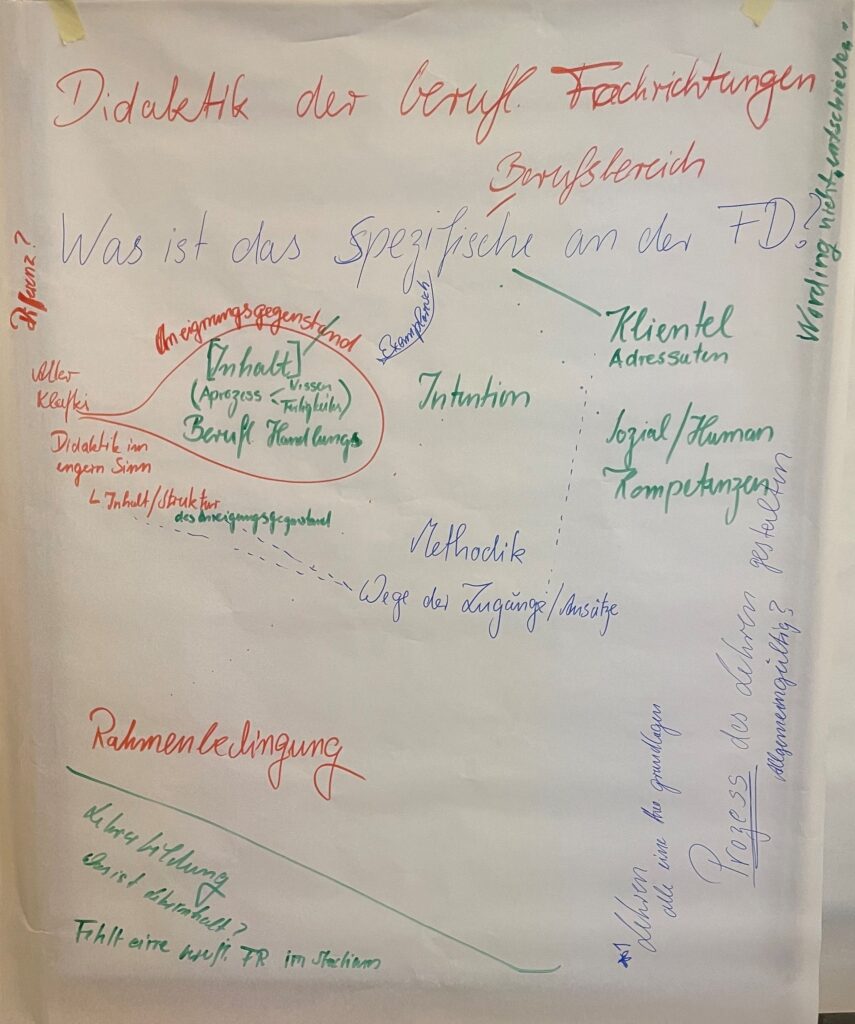 Didaktik der berufl. Fachrichtungen
Berufsbereich
Was ist das Spezifische an der FD?
Wording nicht entschieden..
Exemplarisch
Aneignungsgegenstand
[Inhalt]
(Aprozess < Wissen
Fertigkeiten)
Berufl. Handlungs
Klafki
Didaktik im
engern Sinn
Inhalt/Struktur
des Aneigungsgegenstand
Intention
Klientel
Adressaten
Sozial/Human
Kompetenzen
Methodik
Wege der Zugänge/Ansätze
Rahmenbedingung
Lehrerbildung
Was ist Lehrinhalt?
Fehlt eine berufl. FR im Studium
Lehren
alle eine grundlagen
Prozess des Lehren gestalten
Allgemeingültig?